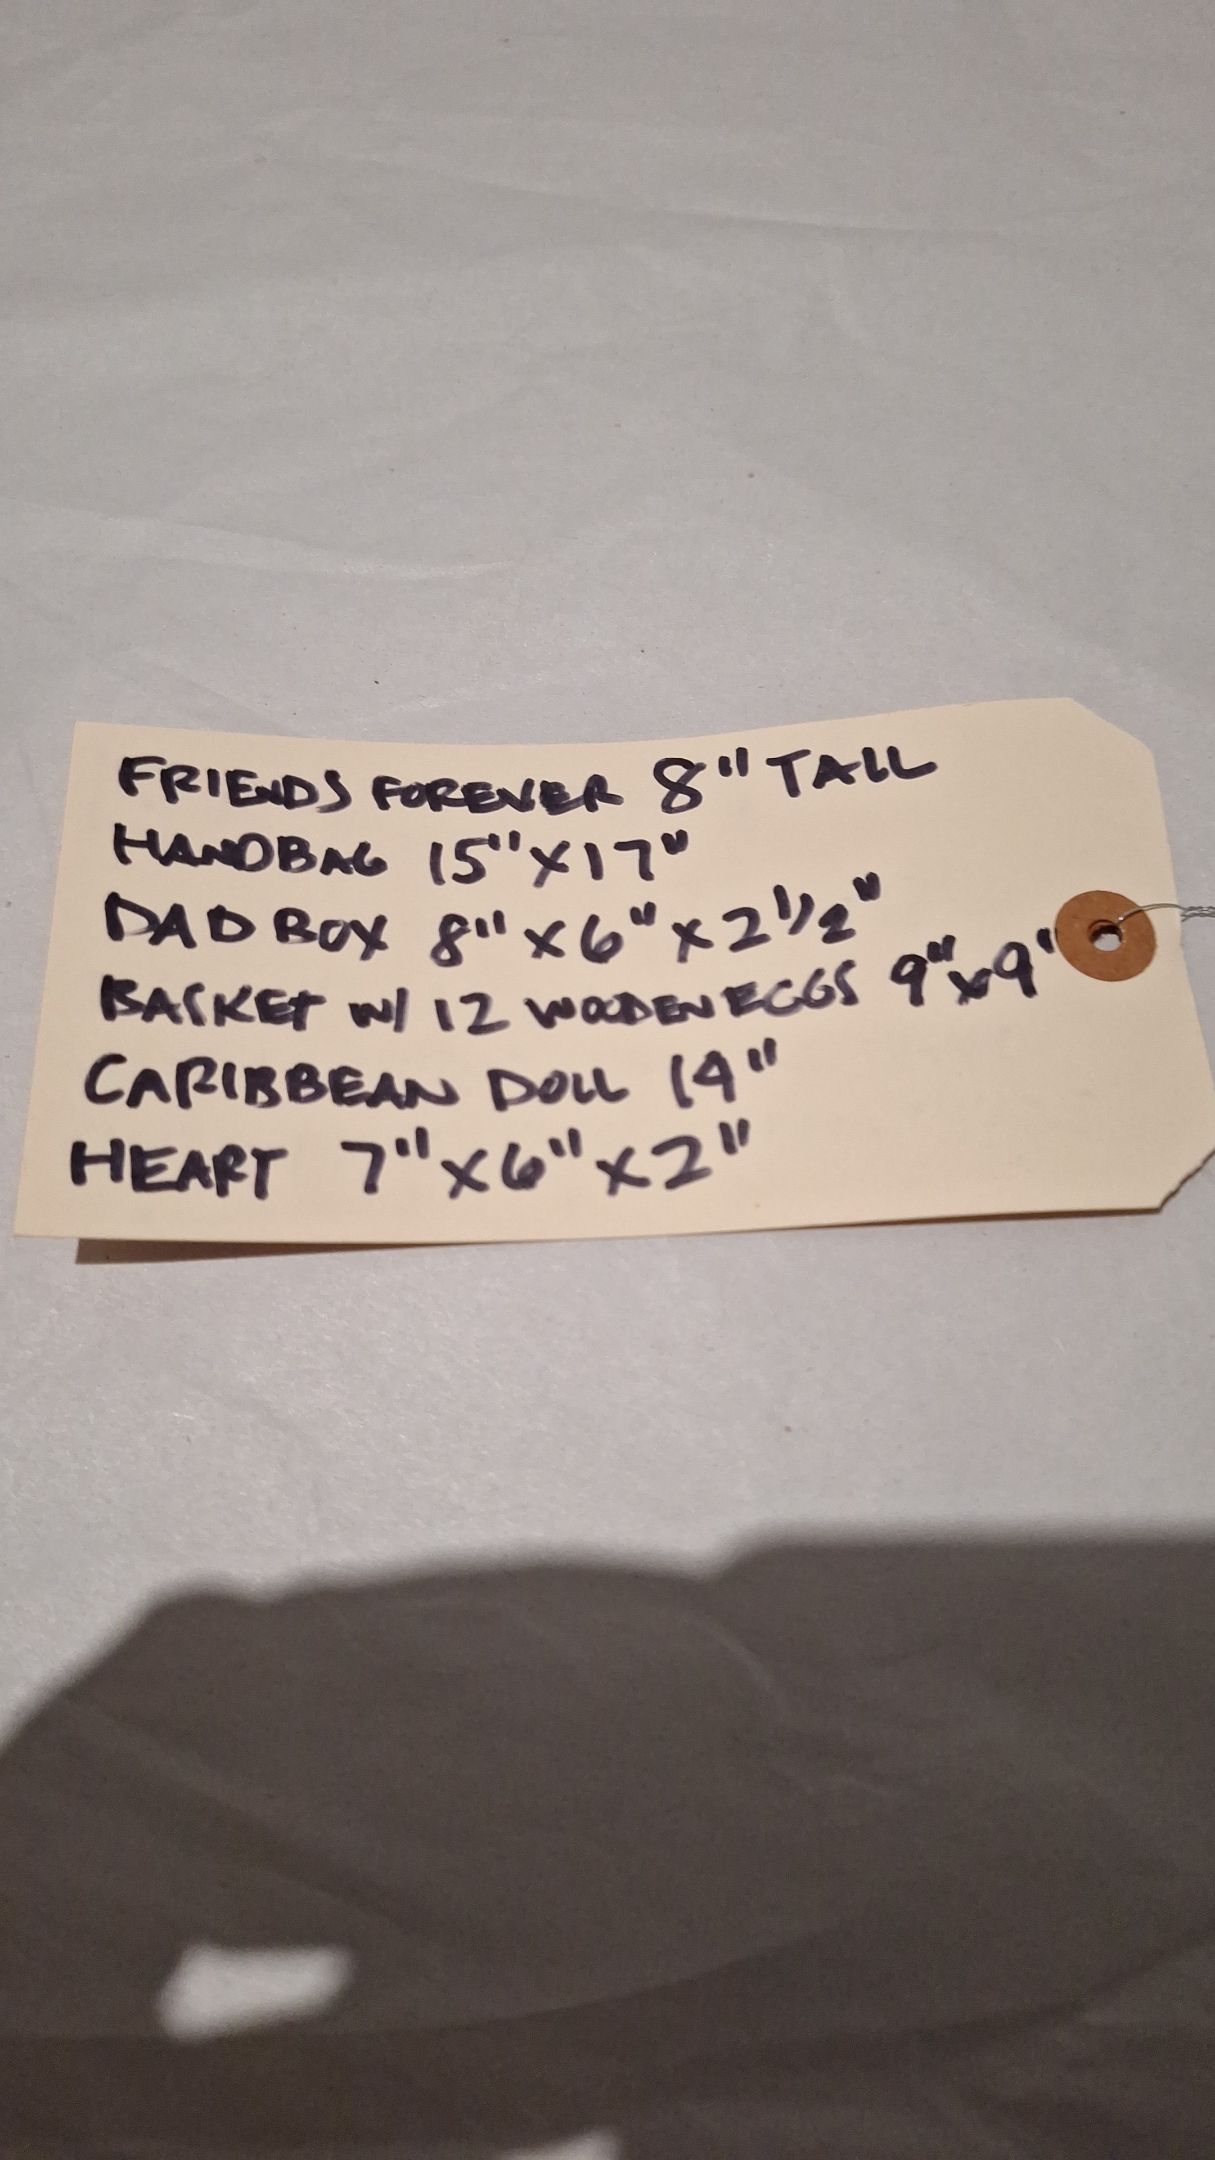 FRIENDS FOREVER 8" TALL
HANDBAG 15" X 17"
DAD BOX 8" X 6" X 2 1/2"
BASKET W/ 12 WOODEN EGGS 9" X 9'
CARIBBEAN DOLL 14"
HEART 7" X 6" X 2"